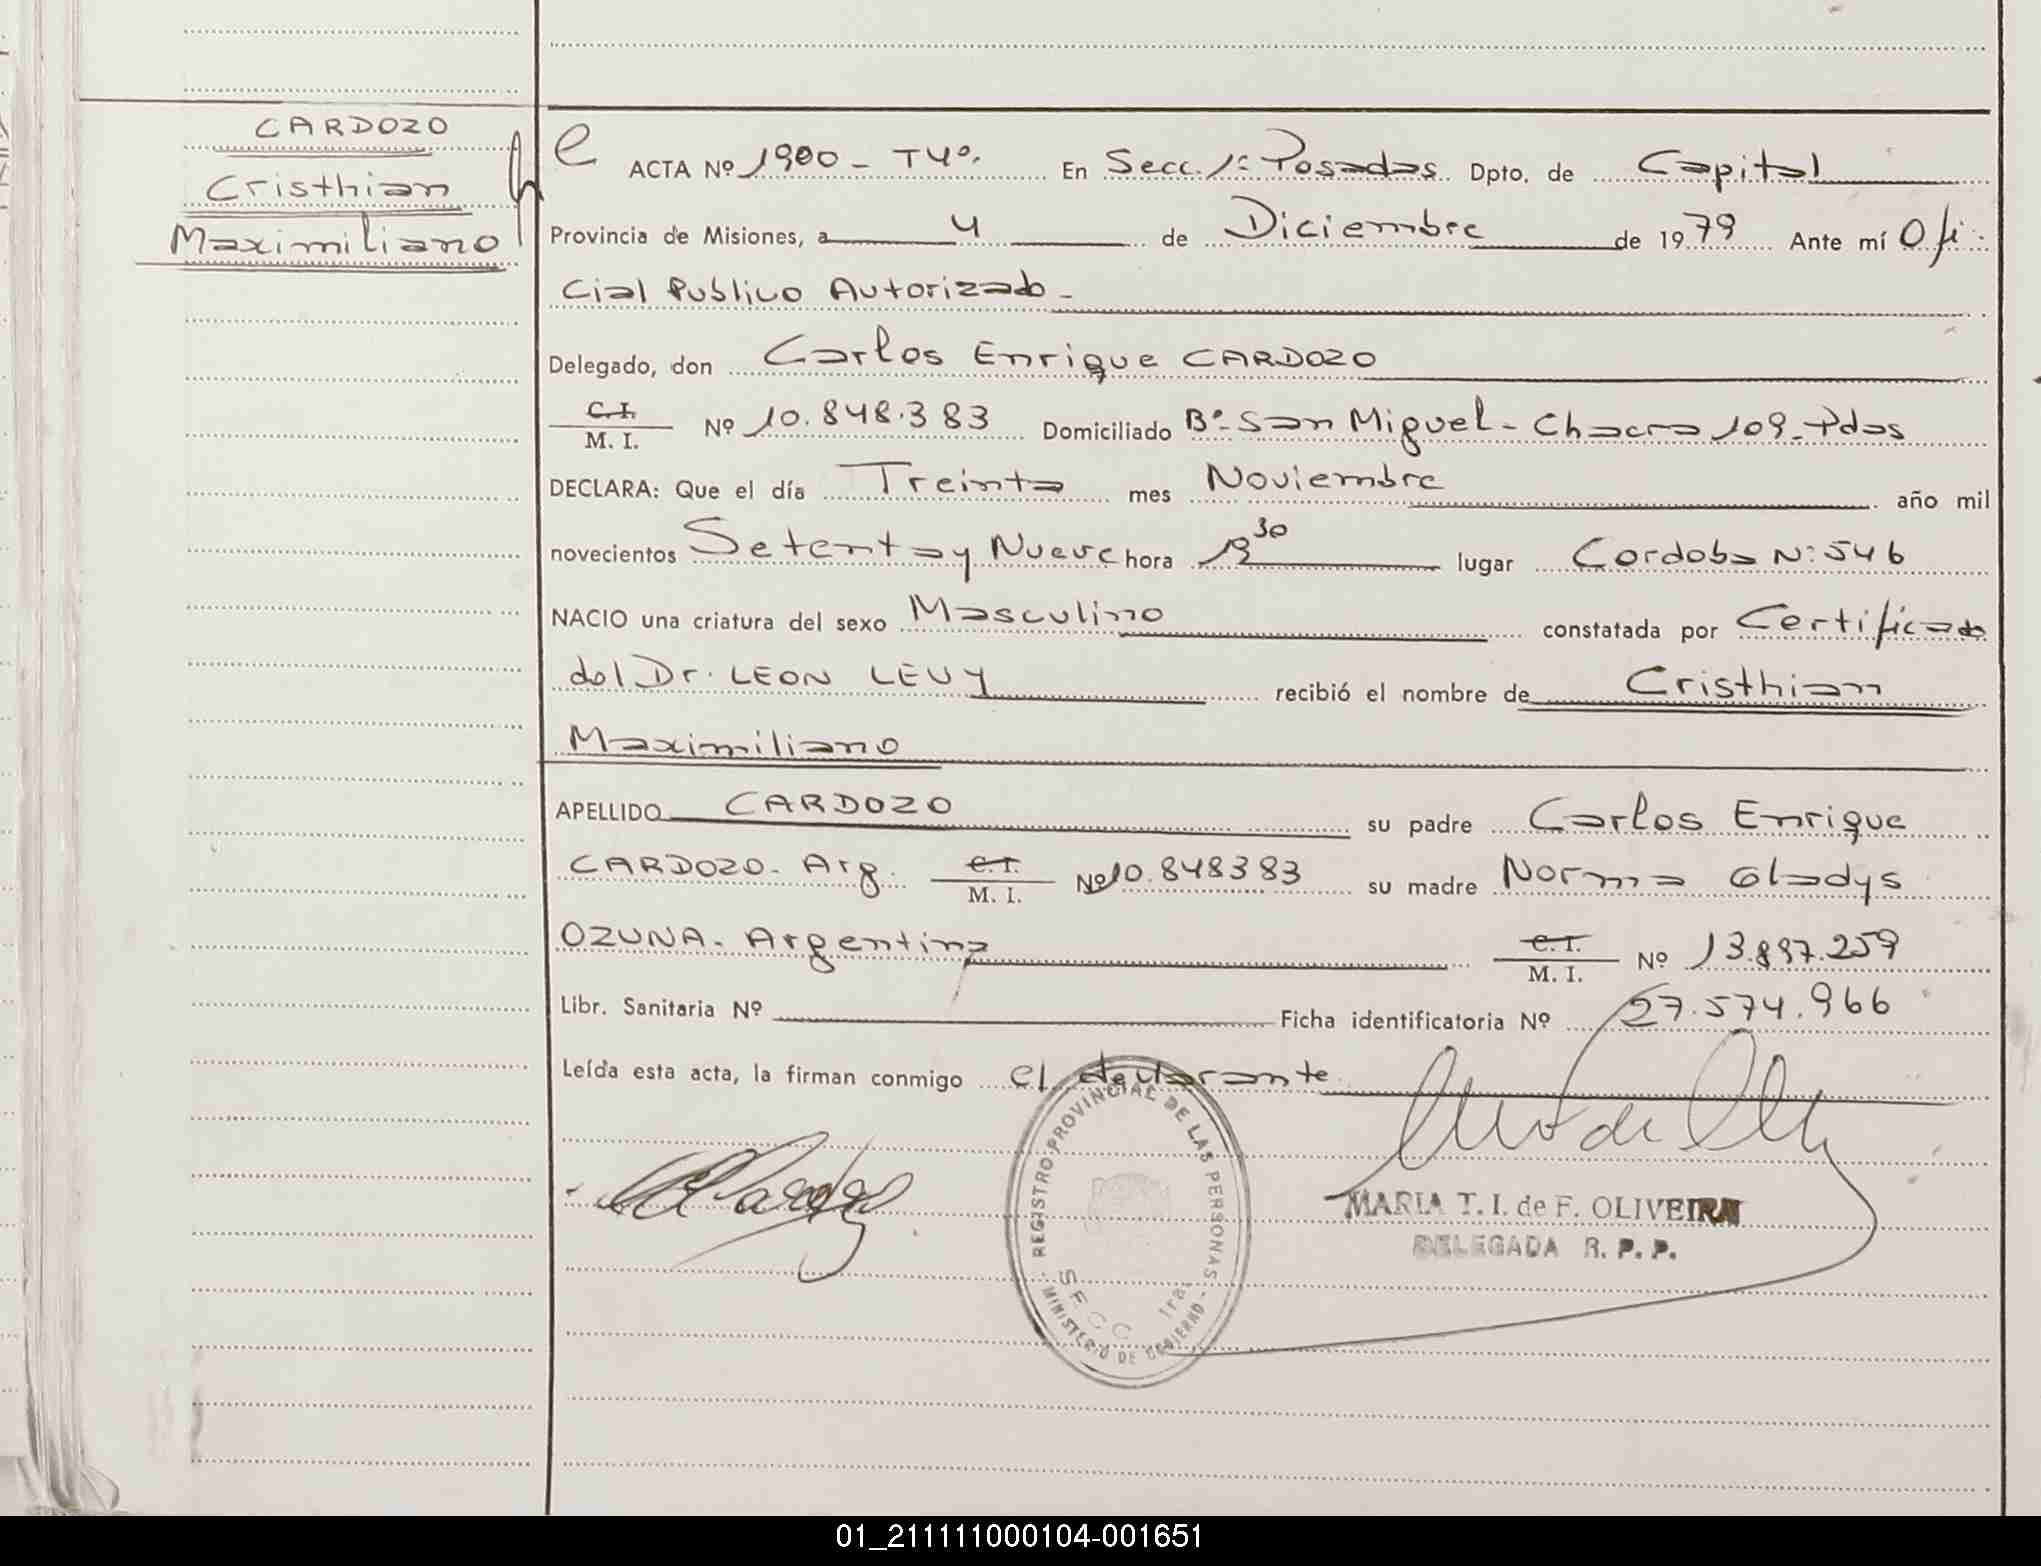 CARDOZO
Cristhian
Maximiliano
ACTA Nº 1900 - T4º. En Secc. 1ª Posadas Dpto. de Capital
Provincia de Misiones, a 4 de Diciembre de 1979 Ante mí Ofi-
cial Publico Autorizado -
Delegado, don Carlos Enrique CARDOZO
C.I. / M. I. Nº 10.848.383 Domiciliado Bº San Miguel - Chacra 109 - Pdas
DECLARA: Que el día Treinta mes Noviembre año mil
novecientos Setenta y Nueve hora lugar Cordoba Nº 546
NACIO una criatura del sexo Masculino constatada por Certificado
del Dr. LEON LEVY recibió el nombre de Cristhian
Maximiliano
APELLIDO CARDOZO su padre Carlos Enrique
CARDOZO - Arg. C.I. / M. I. Nº 10.848383 su madre Norma Gladys
OZUNA - Argentina C.I. / M. I. Nº
Libr. Sanitaria Nº Ficha identificatoria Nº 27.574.966
Leída esta acta, la firman conmigo el declarante
REGISTRO PROVINCIAL DE LAS PERSONAS - MINISTERIO DE GOBIERNO -
SECC 1ra.
MARIA T. I. de F. OLIVEIRA
DELEGADA R. P. P.
01_211111000104-001651